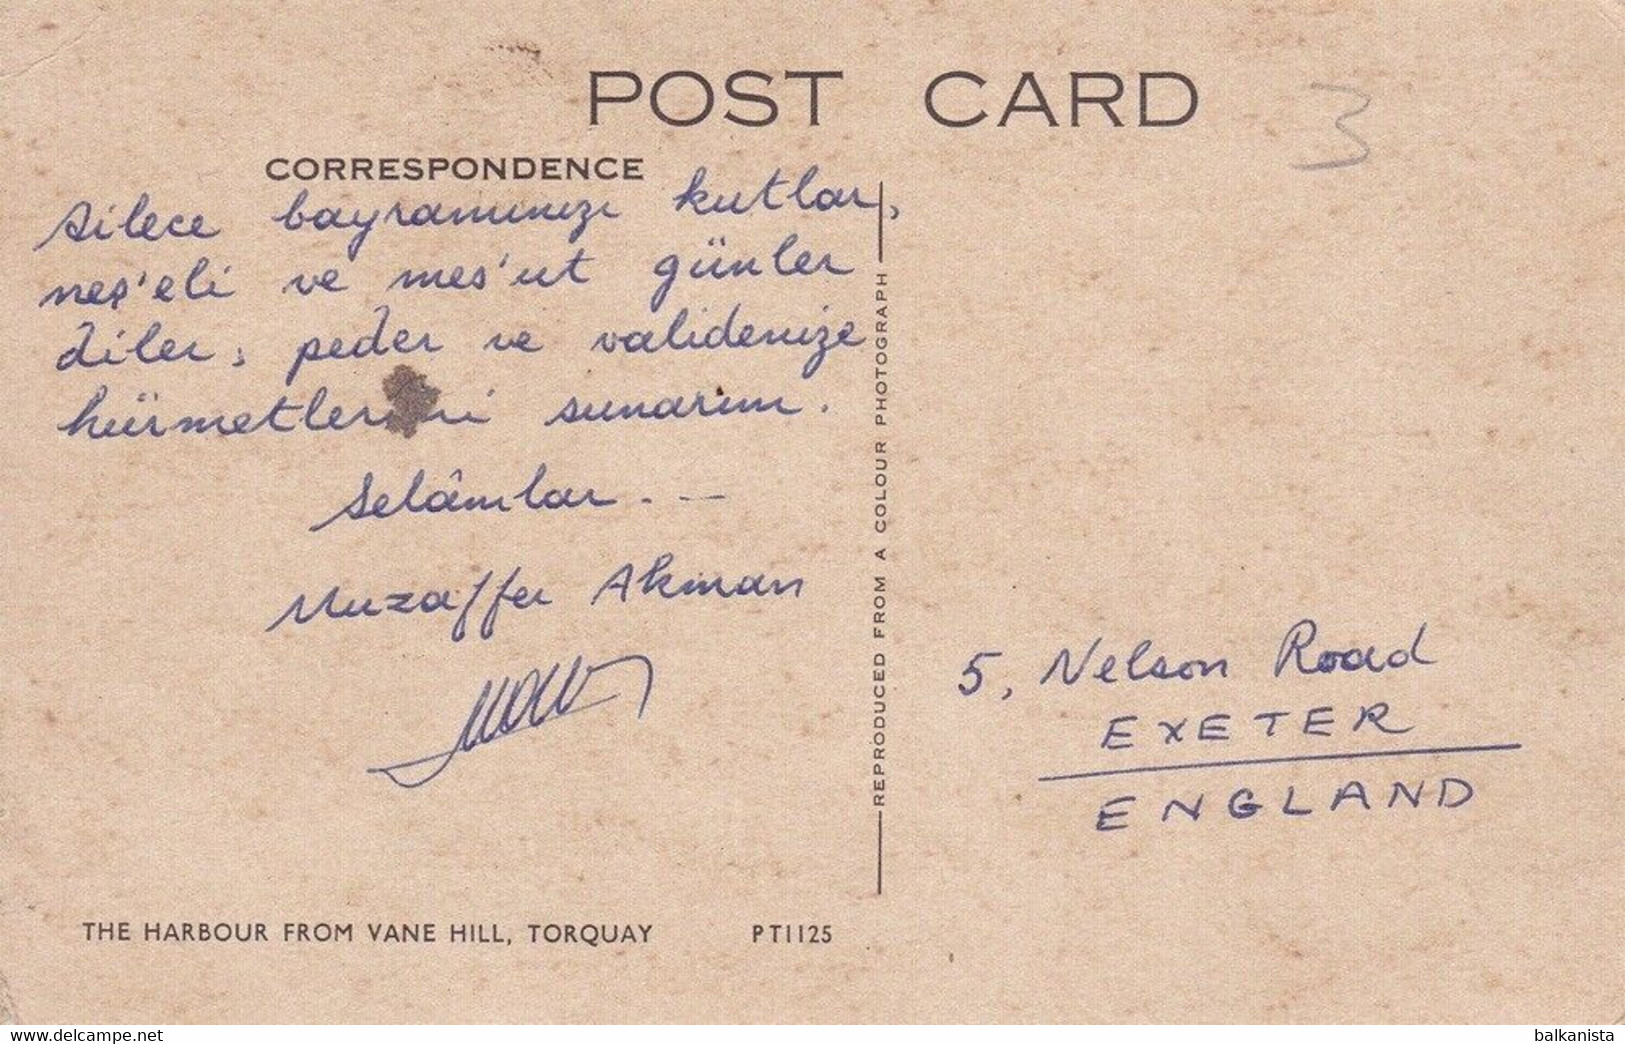 POST CARD
3
CORRESPONDENCE
Ailece bayramınızı kutlar,
neş'eli ve mes'ut günler
diler, peder ve validenize
hürmetlerimi sunarım.
Selâmlar...
Muzaffer Akman
REPRODUCED FROM A COLOUR PHOTOGRAPH
5, Nelson Road
EXETER
ENGLAND
THE HARBOUR FROM VANE HILL, TORQUAY PT1125
www.delcampe.net
balkanista